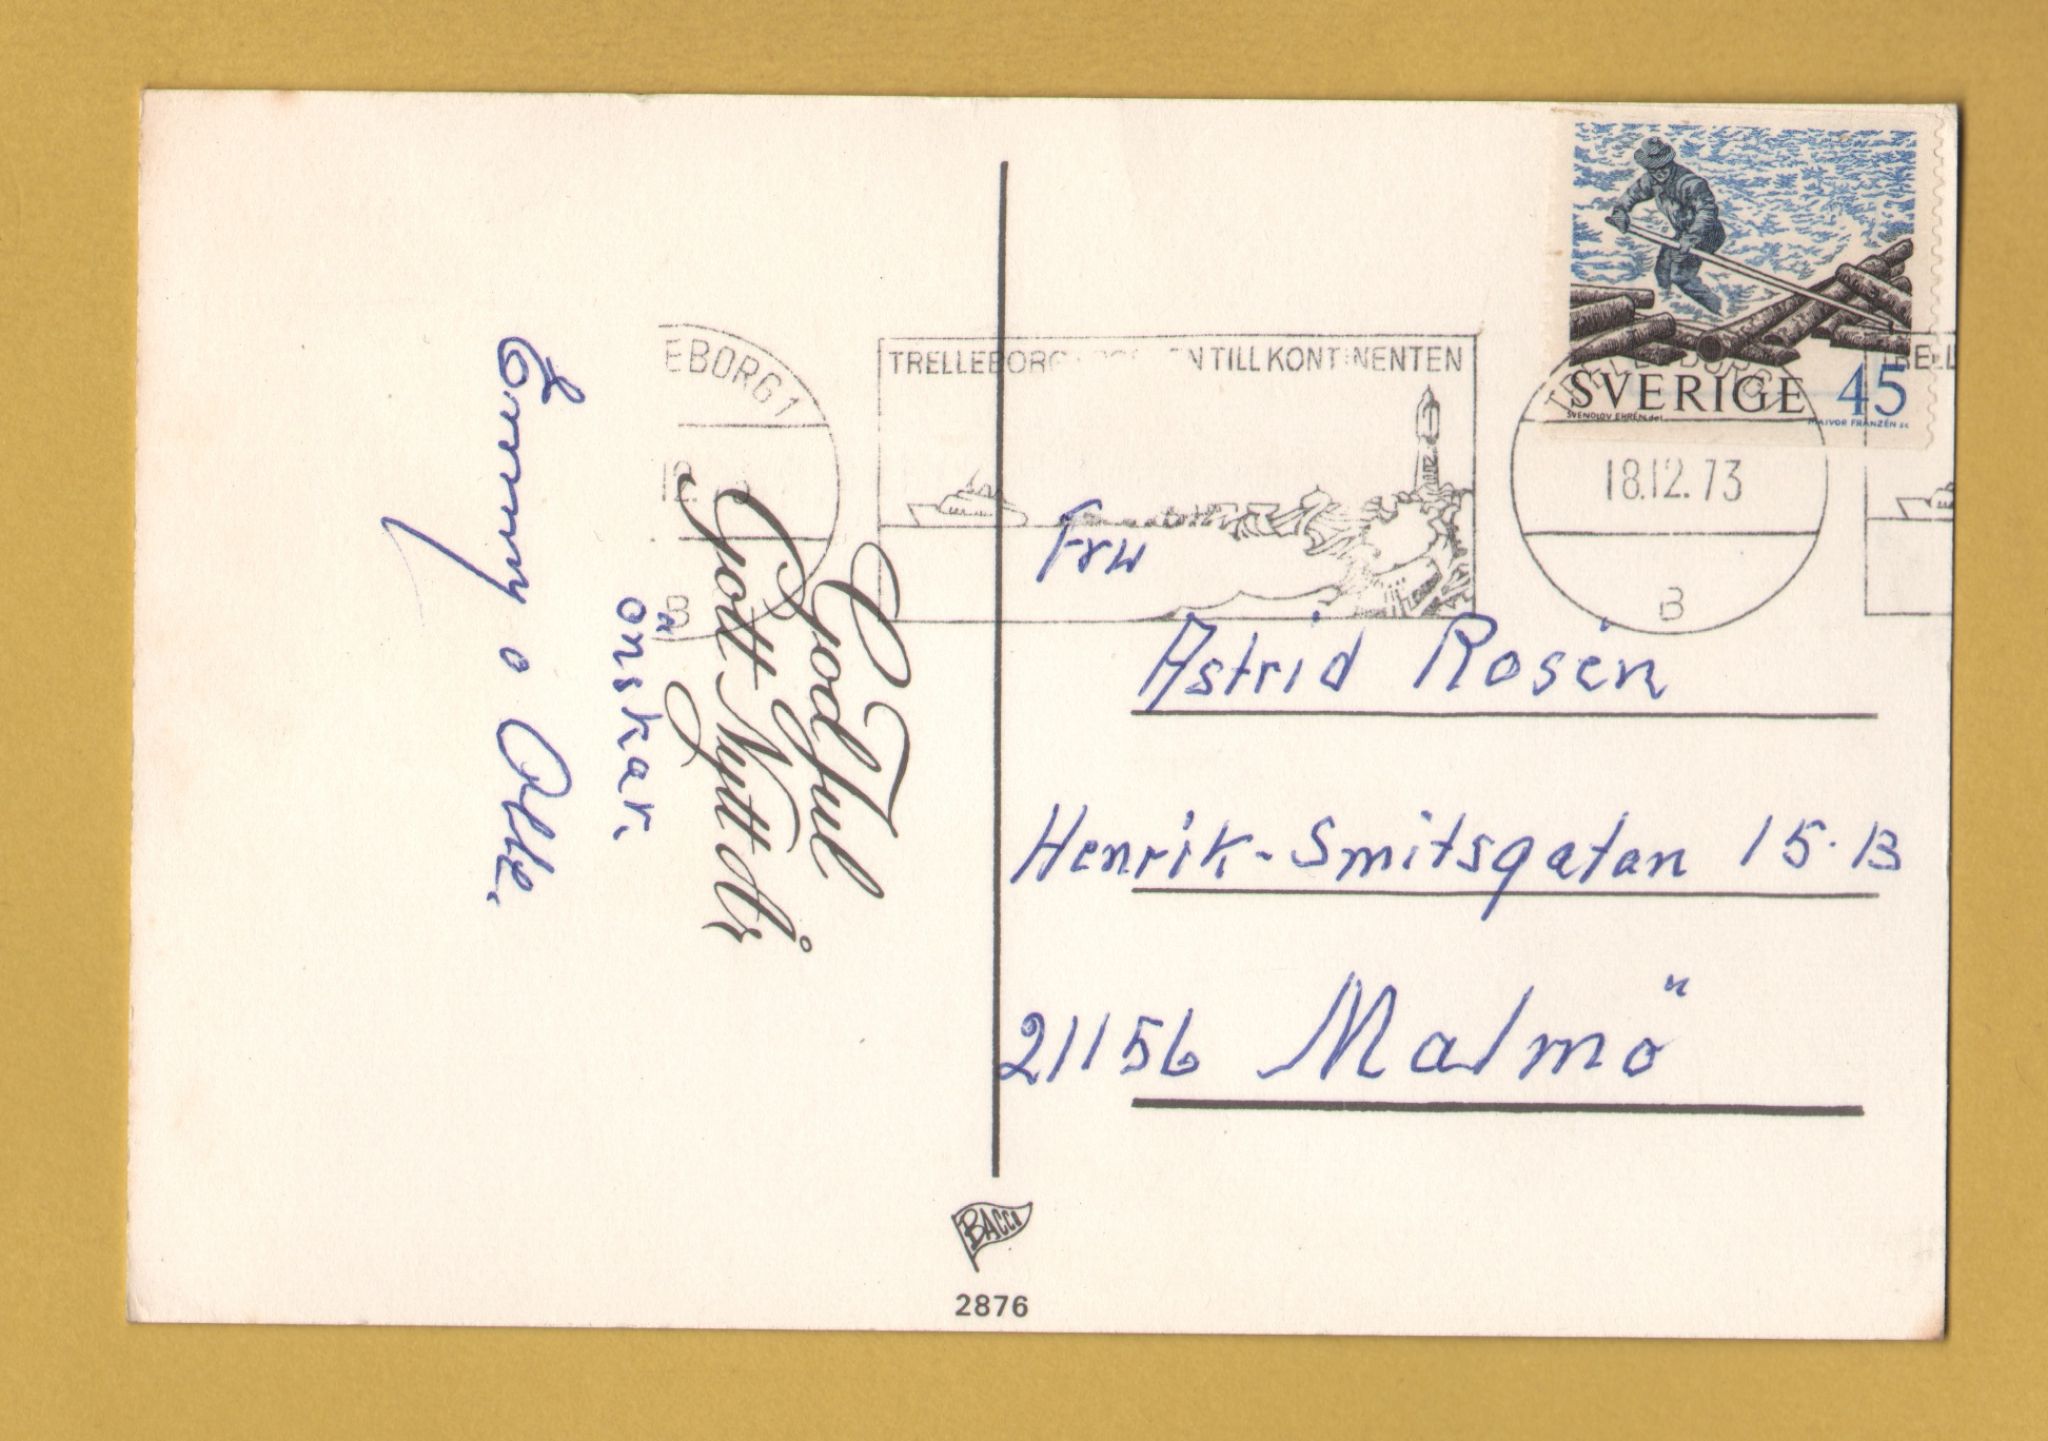 God Jul
Gott Nytt År
önskar.
Emmy o Olle.
EBORG1
12.
B
TRELLEBORG TILL KONTINENTEN
SVERIGE 45
SVENOLOV EHRÉN del.
MAJVOR FRANZÉN sc
TRELLEBORG1
18.12.73
B
TRELL
Fru
Astrid Rosén
Henrik-Smitsgatan 15.B
21156 Malmö
BACCO
2876